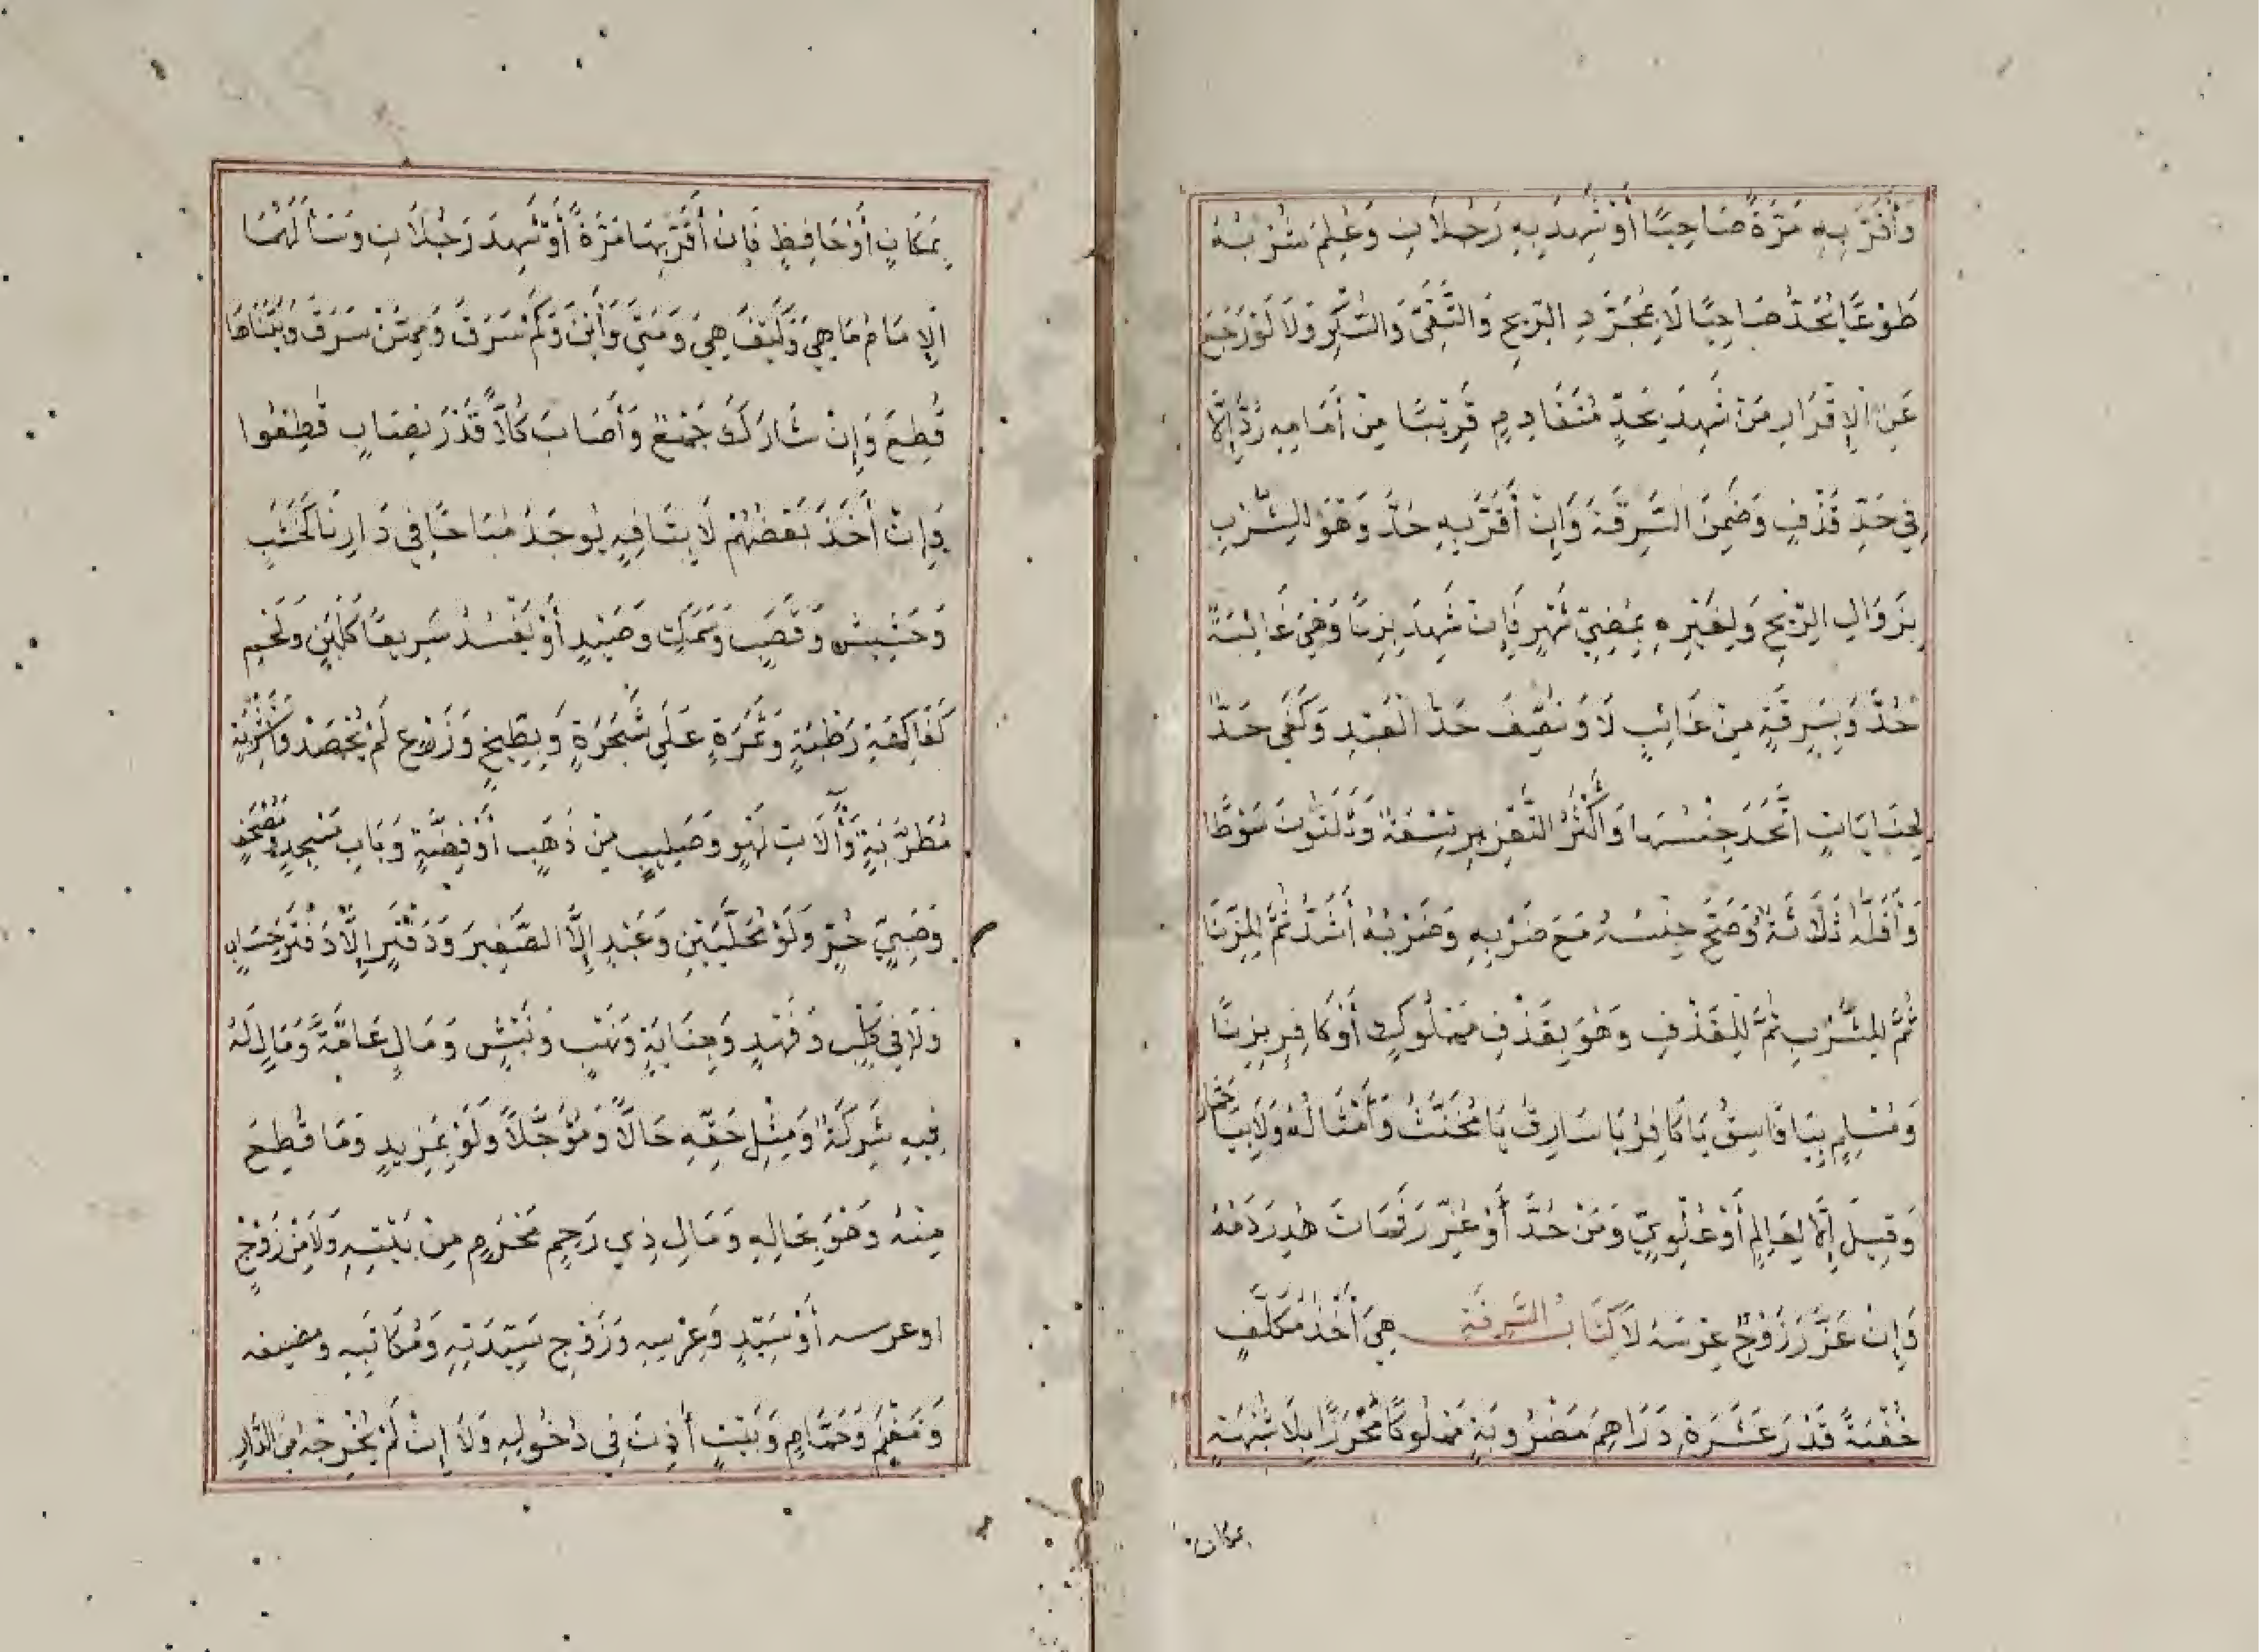 وَأَقَرَّ بِهِ مَرَّةً صَاحِيًا أَوْ شَهِدَ بِهِ رَجُلَانِ وَعُلِمَ شُرْبُهُ
طَوْعًا يُحَدُّ صَاحِيًا لَا بِمُجَرَّدِ الرِّيحِ وَالتَّقَيُّ وَالسُّكْرِ وَلَا لَوْ رَجَعَ
عَنِ الْإِقْرَارِ مَنْ شَهِدَ بِحَدٍّ مُتَقَادِمٍ قَرِيبًا مِنْ أَمَامِهِ رُدَّ إِلَّا
فِي حَدِّ قَذْفٍ وَضَمِنَ السَّرِقَةَ وَإِنْ أَقَرَّ بِهِ حُدَّ وَهُوَ لِلشُّرْبِ
بِزَوَالِ الرِّيحِ وَلِغَيْرِهِ بِمُضِيِّ شَهْرٍ فَإِنْ شَهِدَ بِزِنًا وَهِيَ غَائِبَةً
حُدَّ وَبِسَرِقَةٍ مِنْ غَائِبٍ لَا وَنُصِّفَ حَدُّ الْعَبْدِ وَكَفَى حَدٌّ
لِجِنَايَاتٍ اتَّحَدَ جِنْسُهَا وَأَكْثَرُ التَّعْزِيرِ تِسْعَةٌ وَثَلَثُونَ سَوْطًا
وَأَقَلُّهُ ثَلَاثَةٌ وَصَحَّ حَبْسُهُ مَعَ ضَرْبِهِ وَضَرْبُهُ أَشَدُّ ثُمَّ لِلزِّنَا
ثُمَّ لِلشُّرْبِ ثُمَّ لِلْقَذْفِ وَهُوَ بِقَذْفِ مَمْلُوكٍ أَوْ كَافِرٍ بِزِنًا
وَمُسْلِمٍ بِيَا فَاسِقُ يَا كَافِرُ يَا سَارِقُ يَا مُخَنَّثُ وَأَمْثَالُهُ وَلَا بِيَا حِمَارُ
وَقِيلَ إِلَّا لِعَالِمٍ أَوْ عُلْوِيٍّ وَمَنْ حُدَّ أَوْ عُزِّرَ فَمَاتَ هُدِرَ دَمُهُ
وَإِنْ عَزَّرَ زَوْجٌ عِرْسَهُ لَا كِتَابُ السَّرِقَةِ هِيَ أَخْذُ مُكَلَّفٍ
خُفْيَةً قَدْرَ عَشَرَةِ دَرَاهِمَ مَضْرُوبَةٍ مَمْلُوكًا مُحْرَزًا بِلَا شُبْهَةٍ
بمكان
بِمَكَانٍ أَوْ حَافِظٍ فَإِنْ أَقَرَّ بِهَا مَرَّةً أَوْ شَهِدَ رَجُلَانِ وَسَأَلَهُمَا
الْإِمَامُ مَا هِيَ وَكَيْفَ هِيَ وَمَتَى وَأَيْنَ وَكَمْ سَرَقَ وَمِمَّنْ سَرَقَ وَبَيَّنَاهَا
قُطِعَ وَإِنْ شَارَكَ جَمْعٌ وَأَصَابَ كُلًّا قَدْرُ نِصَابٍ قُطِعُوا
وَإِنْ أَخَذَ بَعْضُهُمْ لَا بِتَافِهٍ يُوجَدُ مُبَاحًا فِي دَارِنَا كَخَشَبٍ
وَحَشِيشٍ وَقَصَبٍ وَسَمَكٍ وَصَيْدٍ أَوْ يَفْسُدُ سَرِيعًا كَلَبَنٍ وَلَحْمٍ
كَفَاكِهَةٍ رَطْبَةٍ وَثَمَرَةٍ عَلَى شَجَرَةٍ وَبِطِّيخٍ وَزَرْعٍ لَمْ يُحْصَدْ وَأَشْرِبَةٍ
مُطَرِّبَةٍ وَآلَاتِ لَهْوٍ وَصَلِيبٍ مِنْ ذَهَبٍ أَوْ فِضَّةٍ وَبَابِ مَسْجِدٍ وَمُصْحَفٍ
وَصَبِيٍّ حُرٍّ وَلَوْ مُحَلَّيَيْنِ وَعَبْدٍ إِلَّا الصَّغِيرَ وَدَفْتَرٍ إِلَّا دَفْتَرَ حِسَابٍ
وَلَا فِي كَلْبٍ وَفَهْدٍ وَخِيَانَةٍ وَنَهْبٍ وَنَبْشٍ وَمَالِ عَامَّةٍ وَمَالٍ لَهُ
فِيهِ شَرِكَةٌ وَمِثْلِ حَقِّهِ حَالًّا وَمُؤَجَّلًا وَلَوْ بِمَزِيدٍ وَمَا قُطِعَ
مِنْهُ وَهُوَ بِحَالِهِ وَمَالِ ذِي رَحِمٍ مَحْرَمٍ مِنْ بَيْتِهِ وَلَا مِنْ زَوْجٍ
اوعرسه أَوْ سَيِّدٍ وَعِرْسِهِ وَزَوْجِ سَيِّدَتِهِ وَمُكَاتَبِهِ ومضيفه
وَمَغْنَمٍ وَحَمَّامٍ وَبَيْتٍ أُذِنَ فِي دُخُولِهِ وَلَا إِنْ لَمْ يُخْرِجْهُ مِنَ الدَّارِ